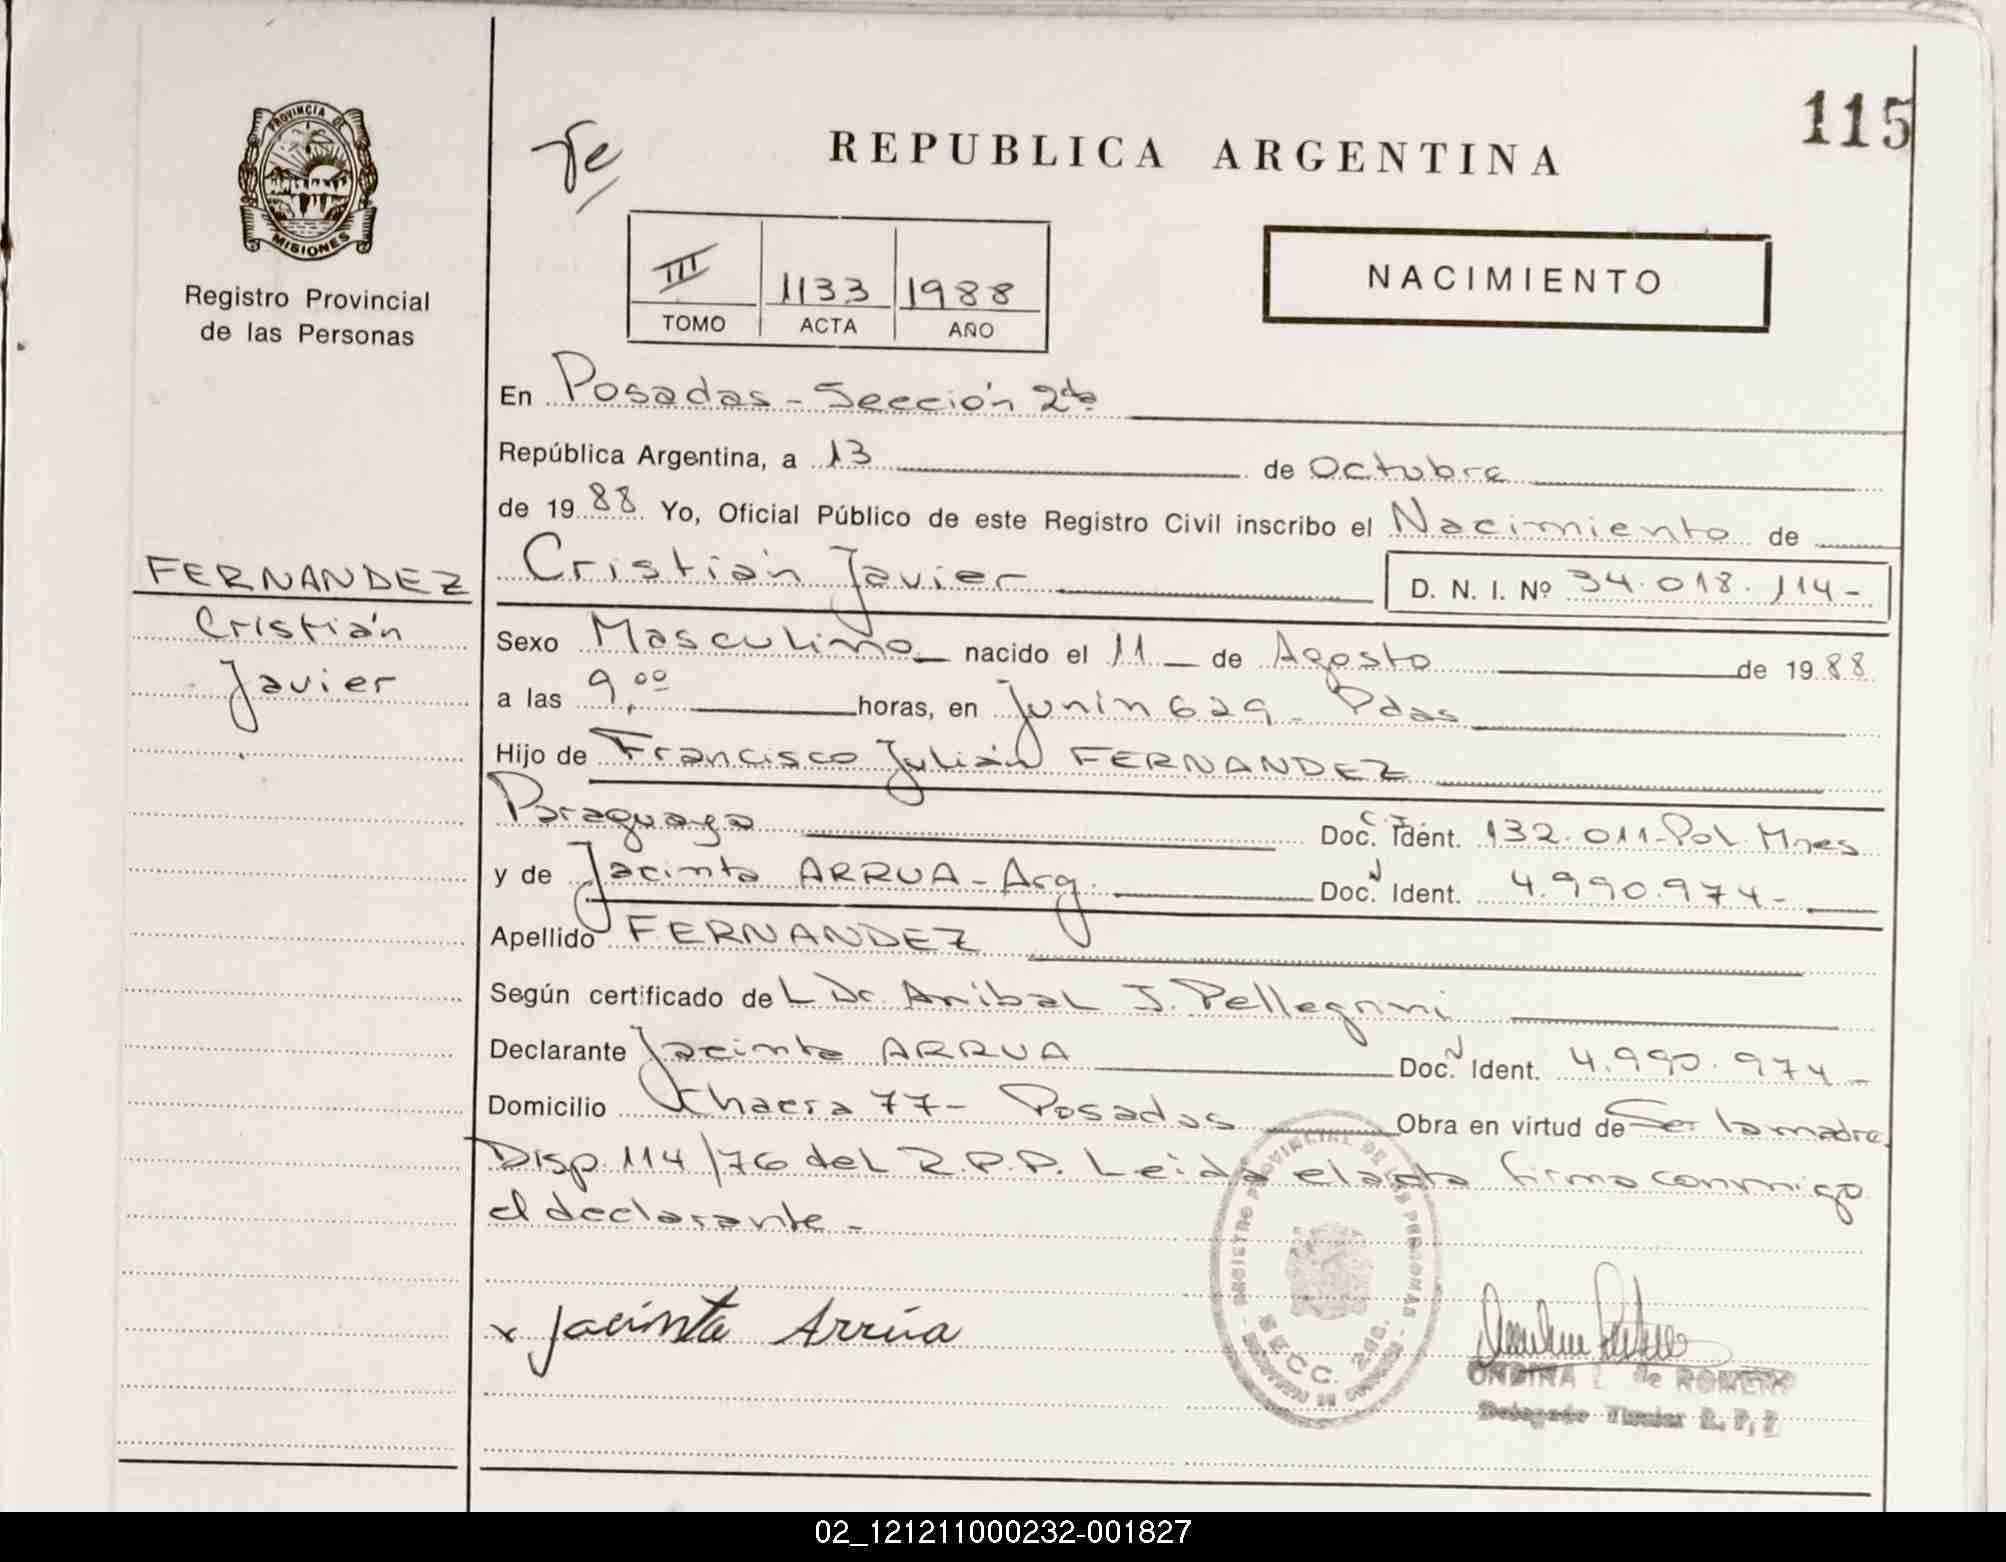 115
PROVINCIA DE
MISIONES
Registro Provincial
de las Personas
REPUBLICA ARGENTINA
III 1133 1988
TOMO ACTA AÑO
NACIMIENTO
En Posadas - Sección 2da
República Argentina, a 13 de Octubre
de 1988 Yo, Oficial Público de este Registro Civil inscribo el Nacimiento de
FERNANDEZ
Cristián
Javier
Cristián Javier D. N. I. Nº 34.018.114-
Sexo Masculino nacido el 11 de Agosto de 1988
a las 9,00 horas, en Junín 629 - Pdas
Hijo de Francisco Julián FERNANDEZ
Paraguayo Doc. C.I. Ident. 132.011-Pol. Mnes
y de Jacinta ARRUA - Arg. Doc. N Ident. 4.990.974-
Apellido FERNANDEZ
Según certificado del Dr. Anibal J. Pellegrini
Declarante Jacinta ARRUA Doc. N Ident. 4.990.974-
Domicilio Chacra 77 - Posadas Obra en virtud de Ser la madre.
Disp. 114/76 del R.P.P. Leida el acta firma conmigo
el declarante -
x Jacinta Arrúa
REGISTRO PROVINCIAL DE LAS PERSONAS
SECC. 2da.
ONDINA de ROMERO
Delegado Titular R.P.P
02_121211000232-001827